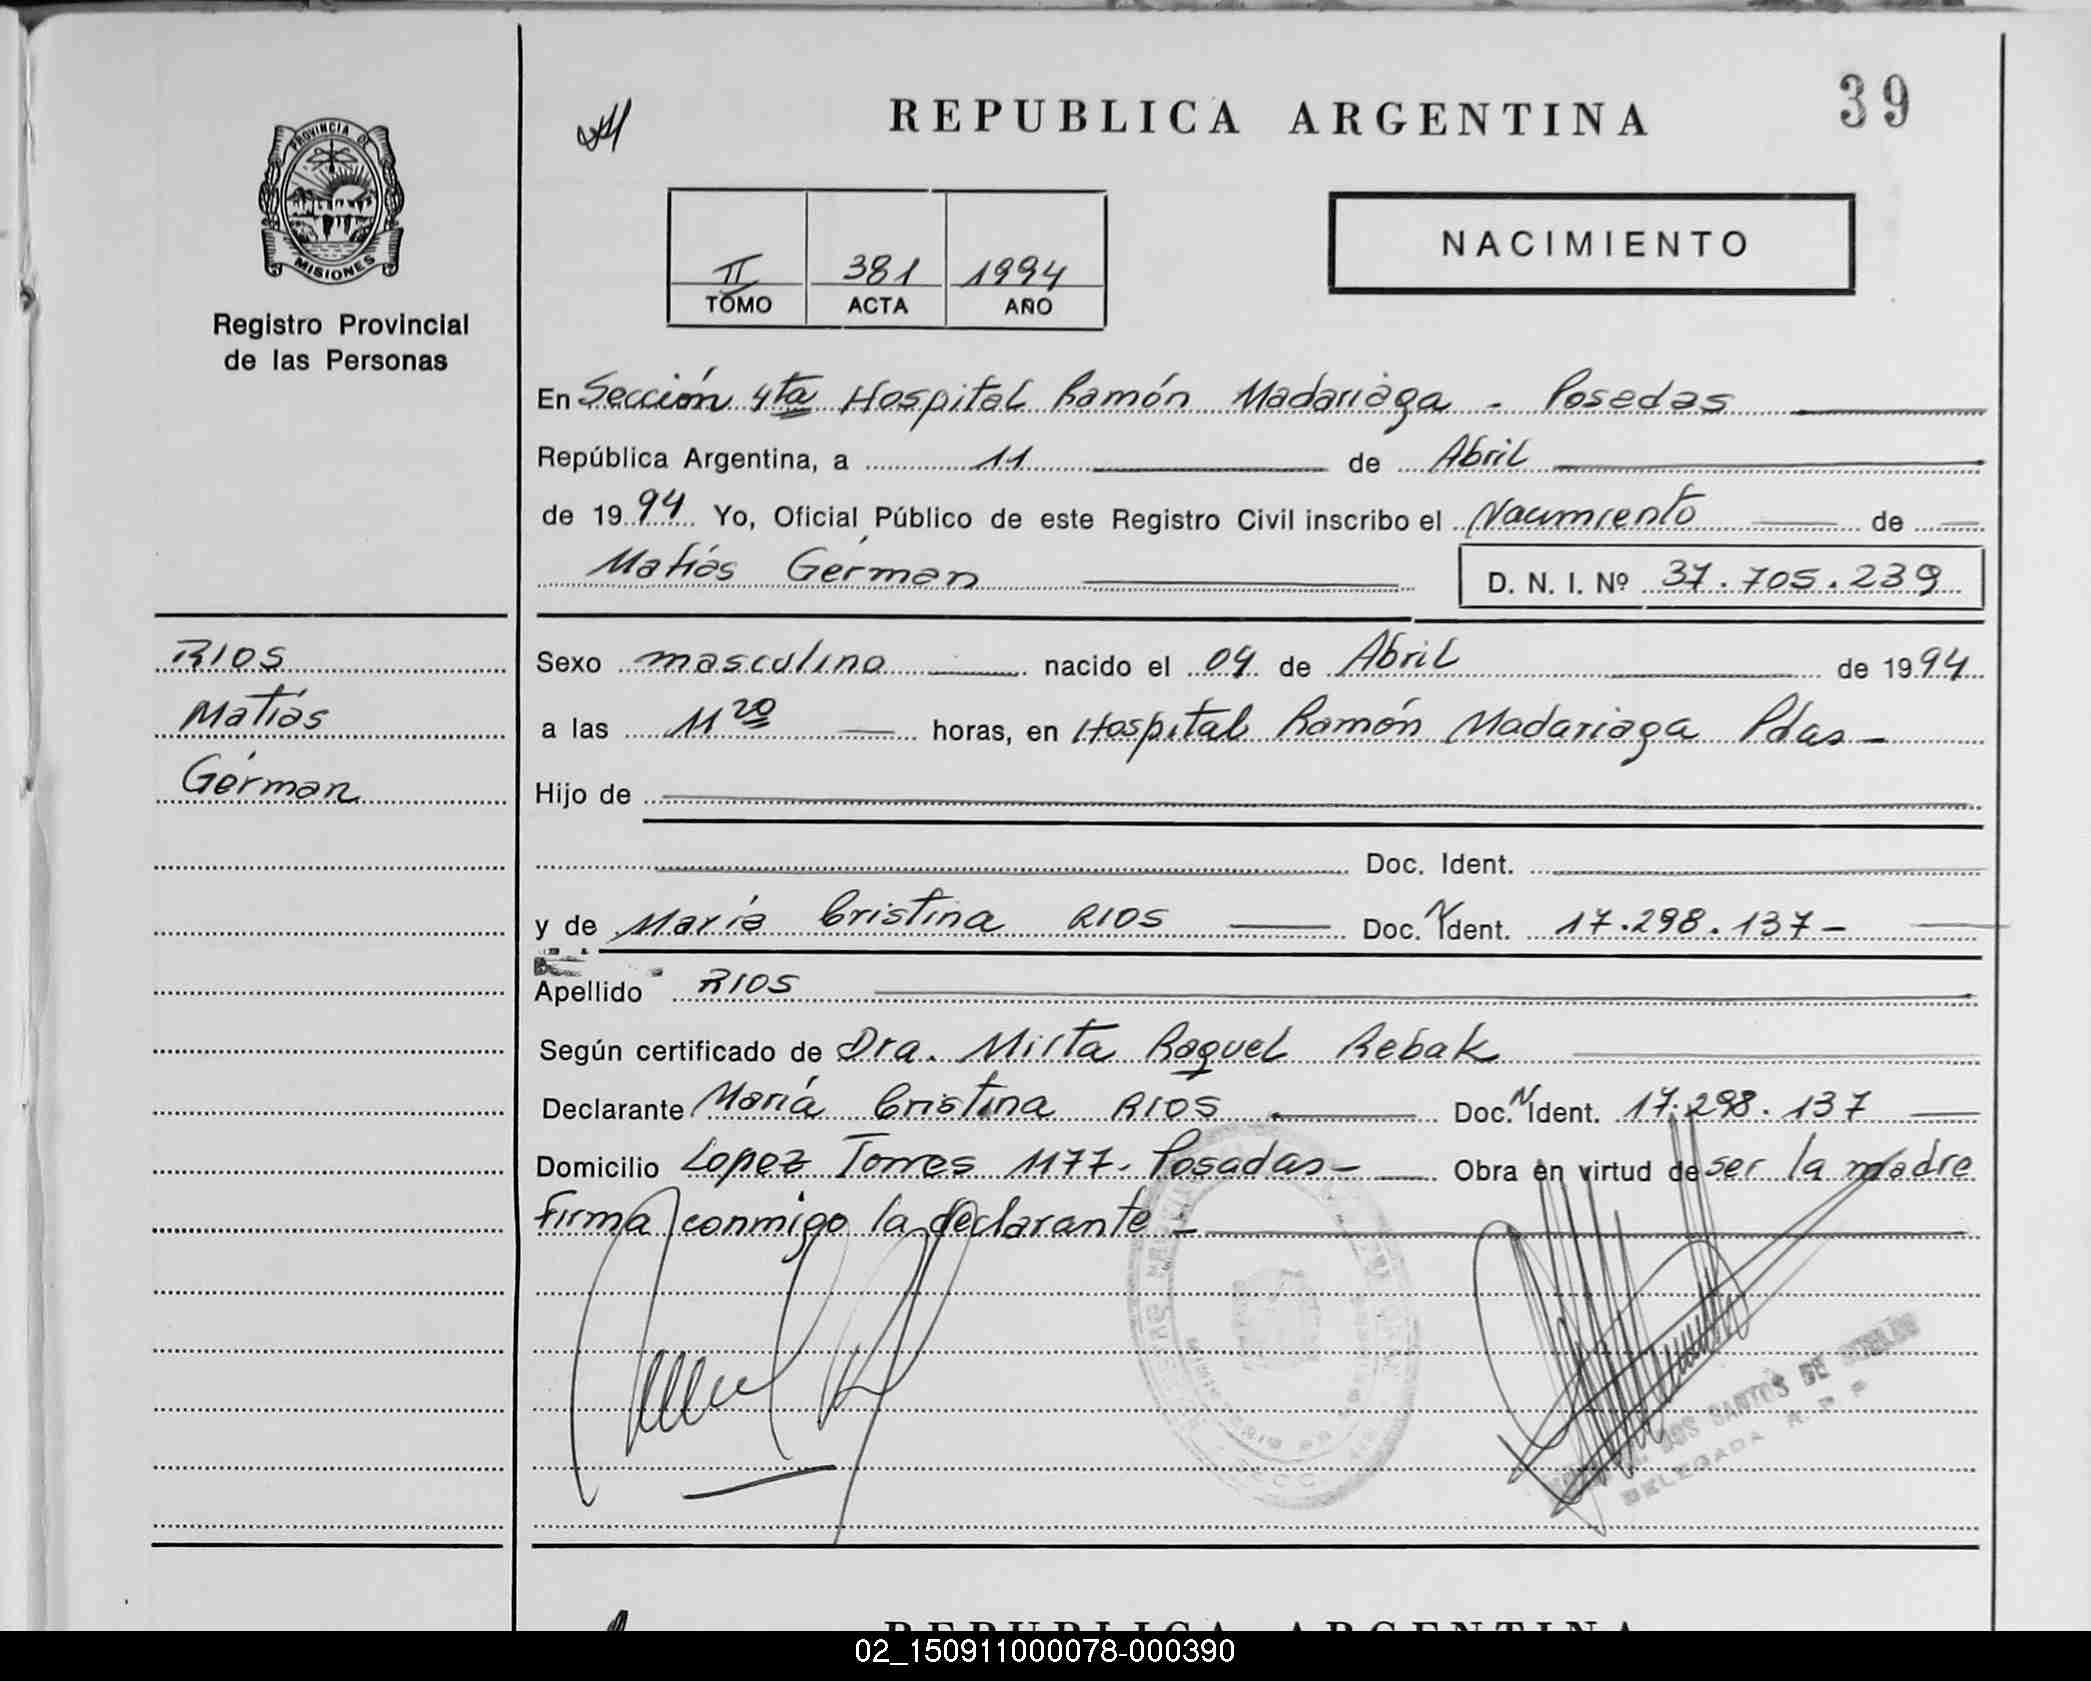 REPUBLICA ARGENTINA
39
PROVINCIA DE
MISIONES
Registro Provincial
de las Personas
NACIMIENTO
II 381 1994
TOMO ACTA AÑO
En Sección 4ta Hospital Ramón Madariaga - Posadas
República Argentina, a 11 de Abril
de 1994 Yo, Oficial Público de este Registro Civil inscribo el Nacimiento de
Matías Gérman
D. N. I. Nº 37.705.239
RIOS
Matías
Gérman
Sexo masculino nacido el 04 de Abril de 1994
a las 11 20 horas, en Hospital Ramón Madariaga Pdas -
Hijo de
Doc. Ident.
y de María Cristina RIOS Doc. N Ident. 17.298.137 -
Apellido RIOS
Según certificado de Dra. Mirta Raquel Rebak
Declarante María Cristina RIOS Doc. N Ident. 17.298.137
Domicilio Lopez Torres 1177 - Posadas - Obra en virtud de ser la madre
firma conmigo la declarante -
DOS SANTOS DE
DELEGADA R. P. P.
REPUBLICA ARGENTINA
02_150911000078-000390